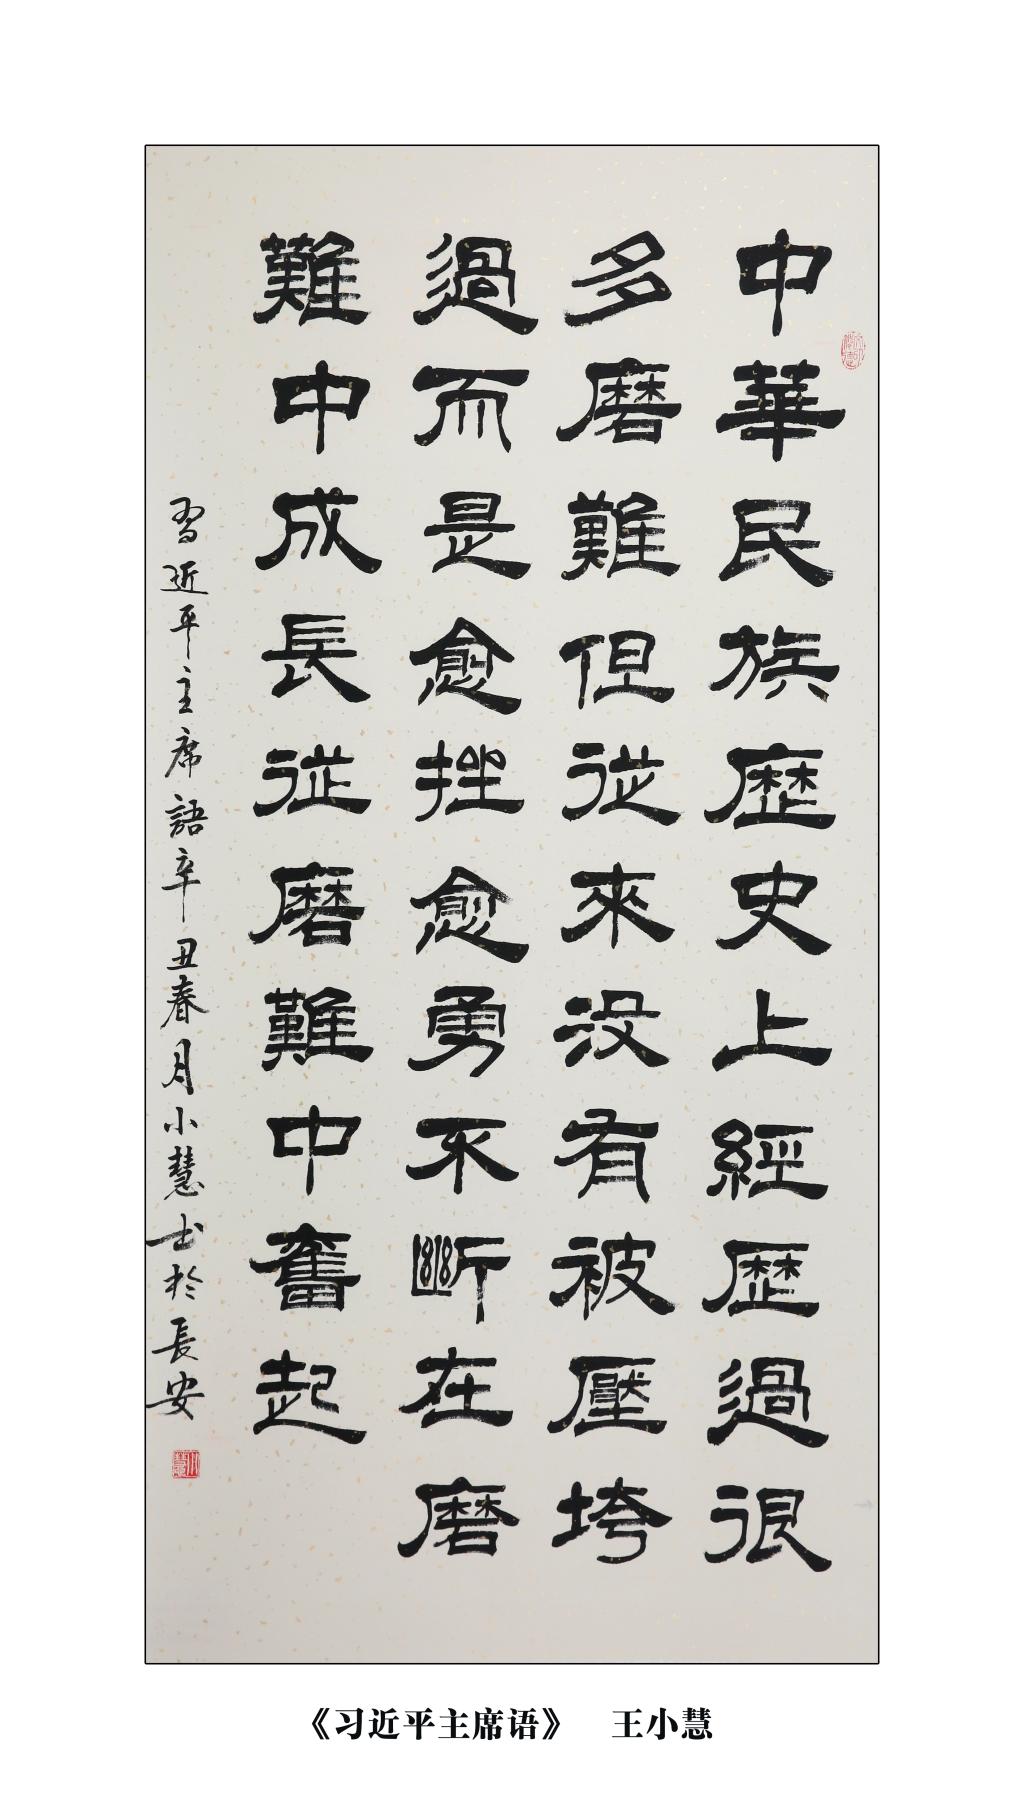 中華民族歷史上經歷過很
多磨難但從來没有被壓垮
過而是愈挫愈勇不斷在磨
難中成長從磨難中奮起
習近平主席語辛丑春月小慧书於長安
《习近平主席语》 王小慧